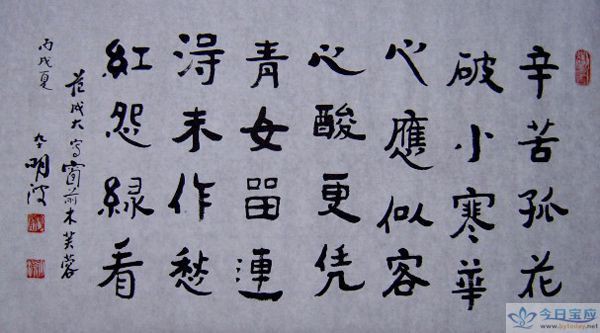 辛苦孤花
破小寒華
心應似客
心酸更凭
青女畱連
淂未作愁
紅怨緑看
范成大写窗前木芙蓉
丙戌夏
明波
今日宝应
www.bytoday.net